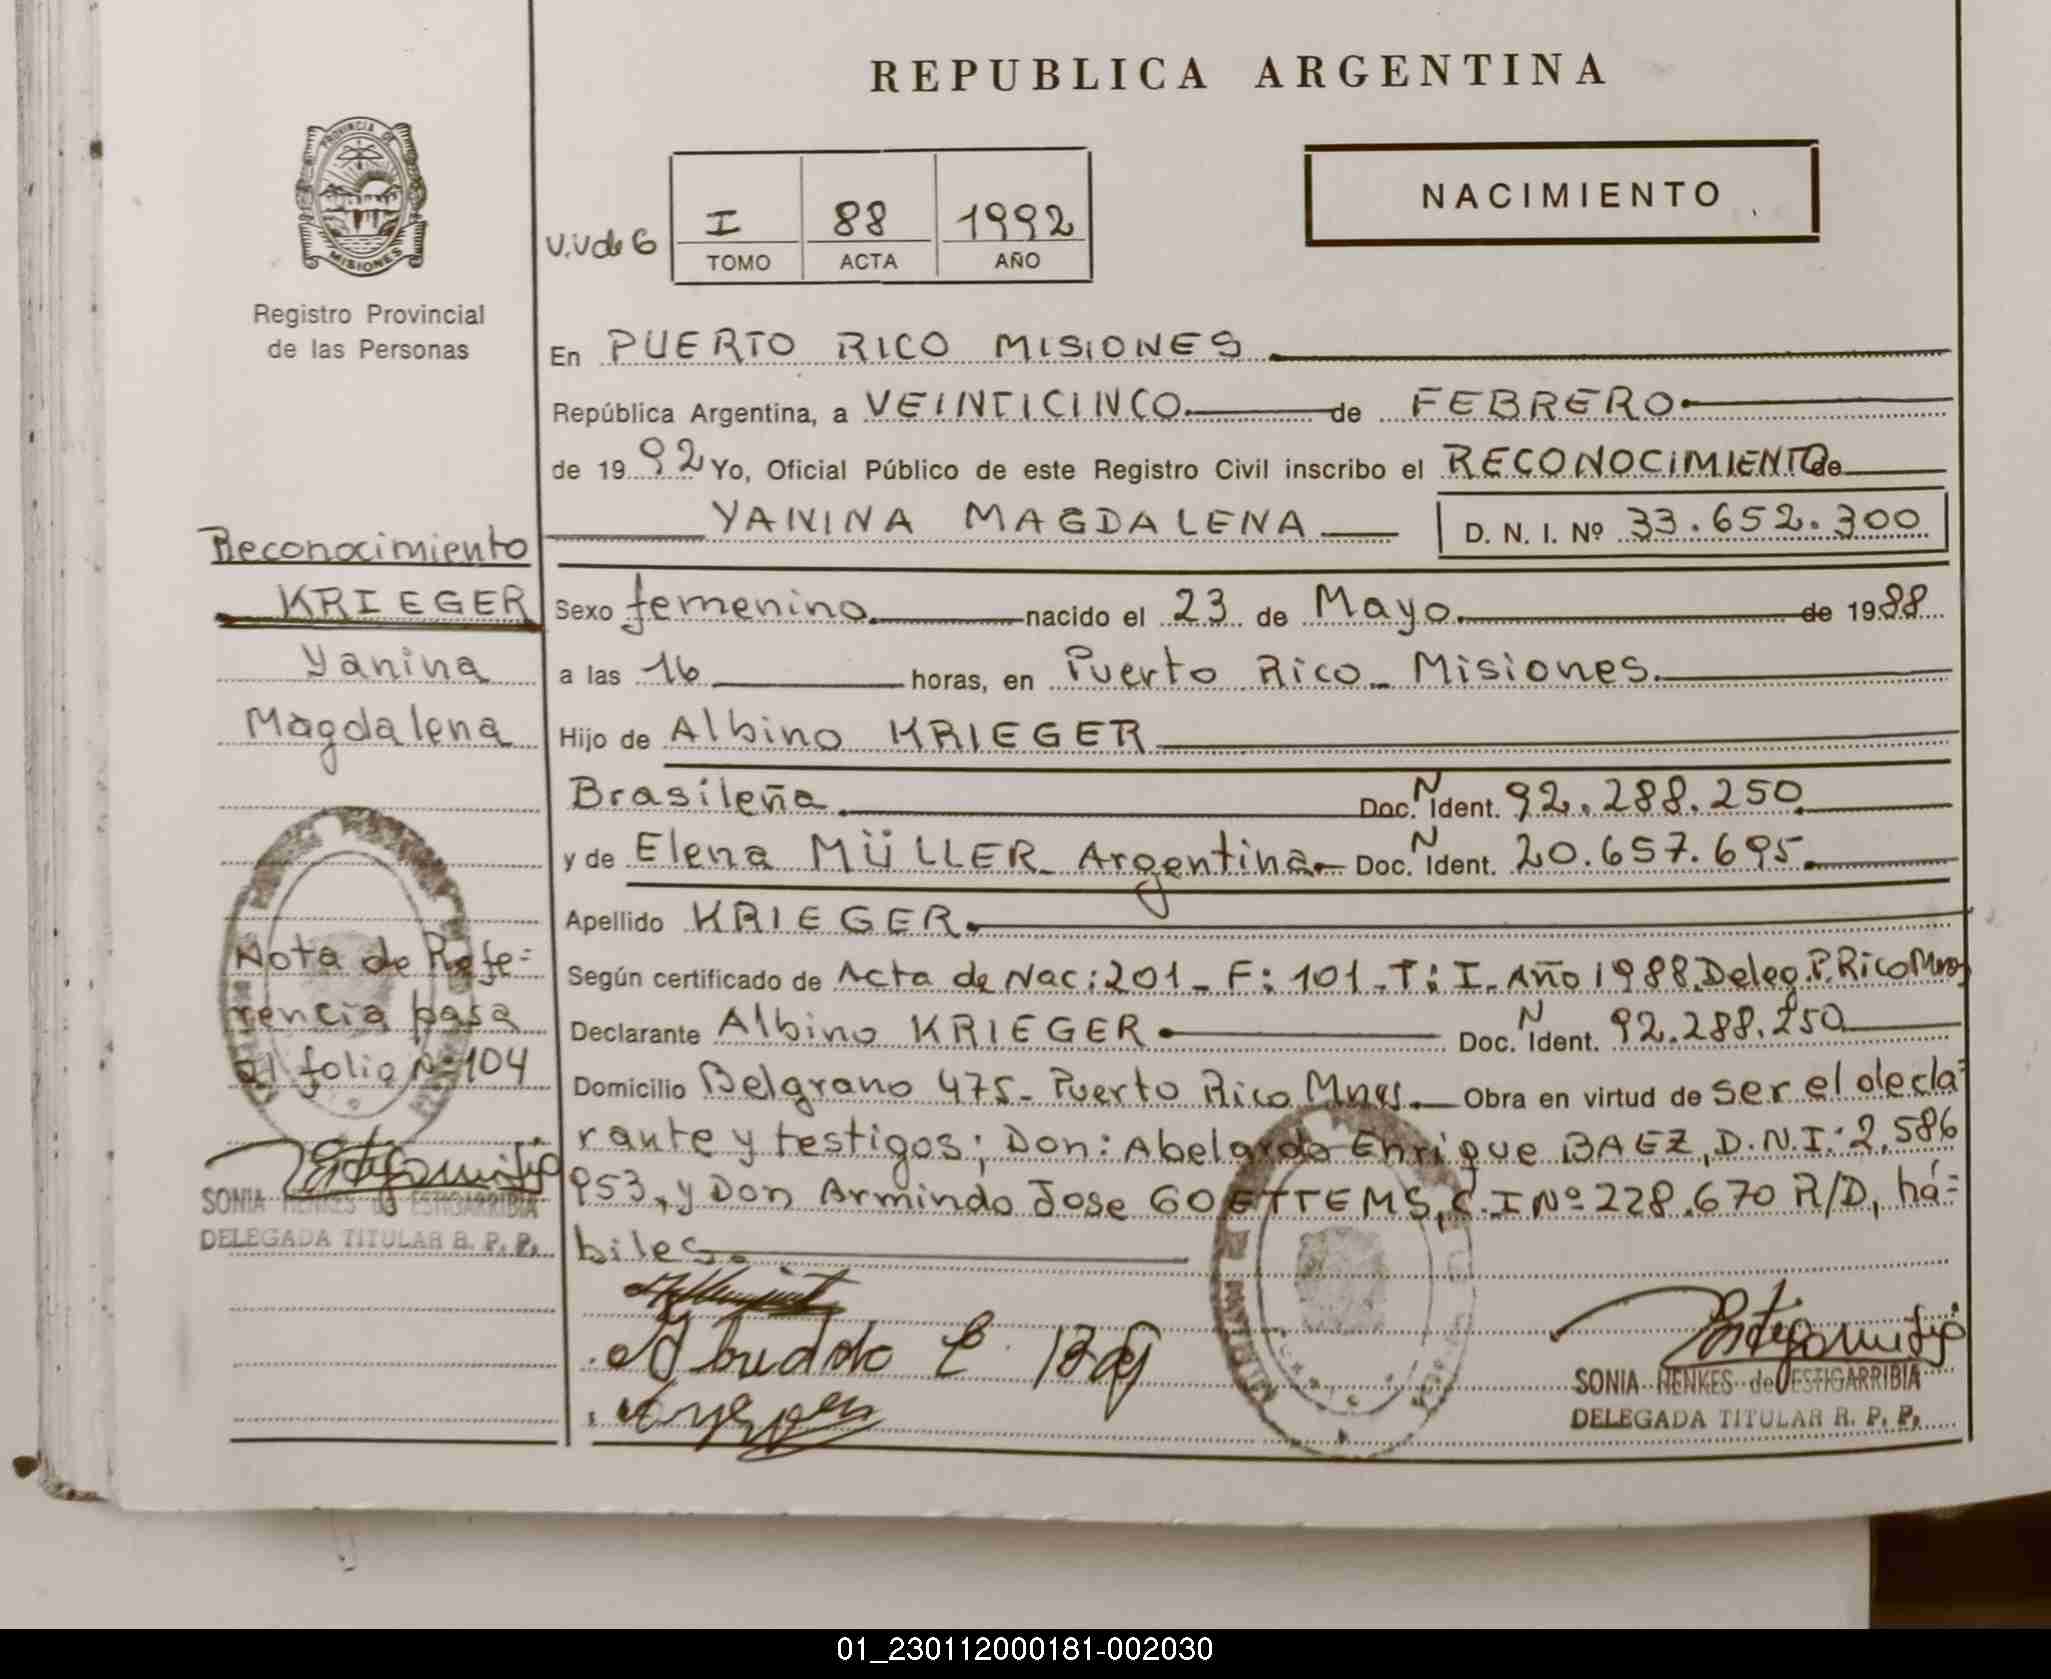 REPUBLICA ARGENTINA
PROVINCIA DE
MISIONES
Registro Provincial
de las Personas
NACIMIENTO
V.V de G
I 88 1992
TOMO ACTA AÑO
En PUERTO RICO MISIONES
República Argentina, a VEINTICINCO de FEBRERO
de 1992 Yo, Oficial Público de este Registro Civil inscribo el RECONOCIMIENTO de
YANINA MAGDALENA D. N. I. Nº 33.652.300
Sexo femenino nacido el 23 de Mayo de 1988
a las 16 horas, en Puerto Rico - Misiones.
Hijo de Albino KRIEGER
Brasileña Doc. N Ident. 92.288.250
y de Elena MÜLLER - Argentina - Doc. N Ident. 20.657.695
Apellido KRIEGER
Según certificado de Acta de Nac: 201 - F: 101 - T: I - Año 1988. Deleg. P. Rico Mnes
Declarante Albino KRIEGER Doc. N Ident. 92.288.250
Domicilio Belgrano 475 - Puerto Rico Mnes. Obra en virtud de ser el decla=
rante y testigos; Don: Abelardo Enrique BAEZ, D.N.I: 2.586
953, y Don Armindo Jose GOETTEMS, C.I Nº 228.670 R/D, há=
biles.
SONIA HENKES de ESTIGARRIBIA
DELEGADA TITULAR R. P. P.
Reconocimiento
KRIEGER
Yanina
Magdalena
Nota de Refe=
rencia pasa
al folio Nº 104
SONIA HENKES de ESTIGARRIBIA
DELEGADA TITULAR R. P. P.
01_230112000181-002030